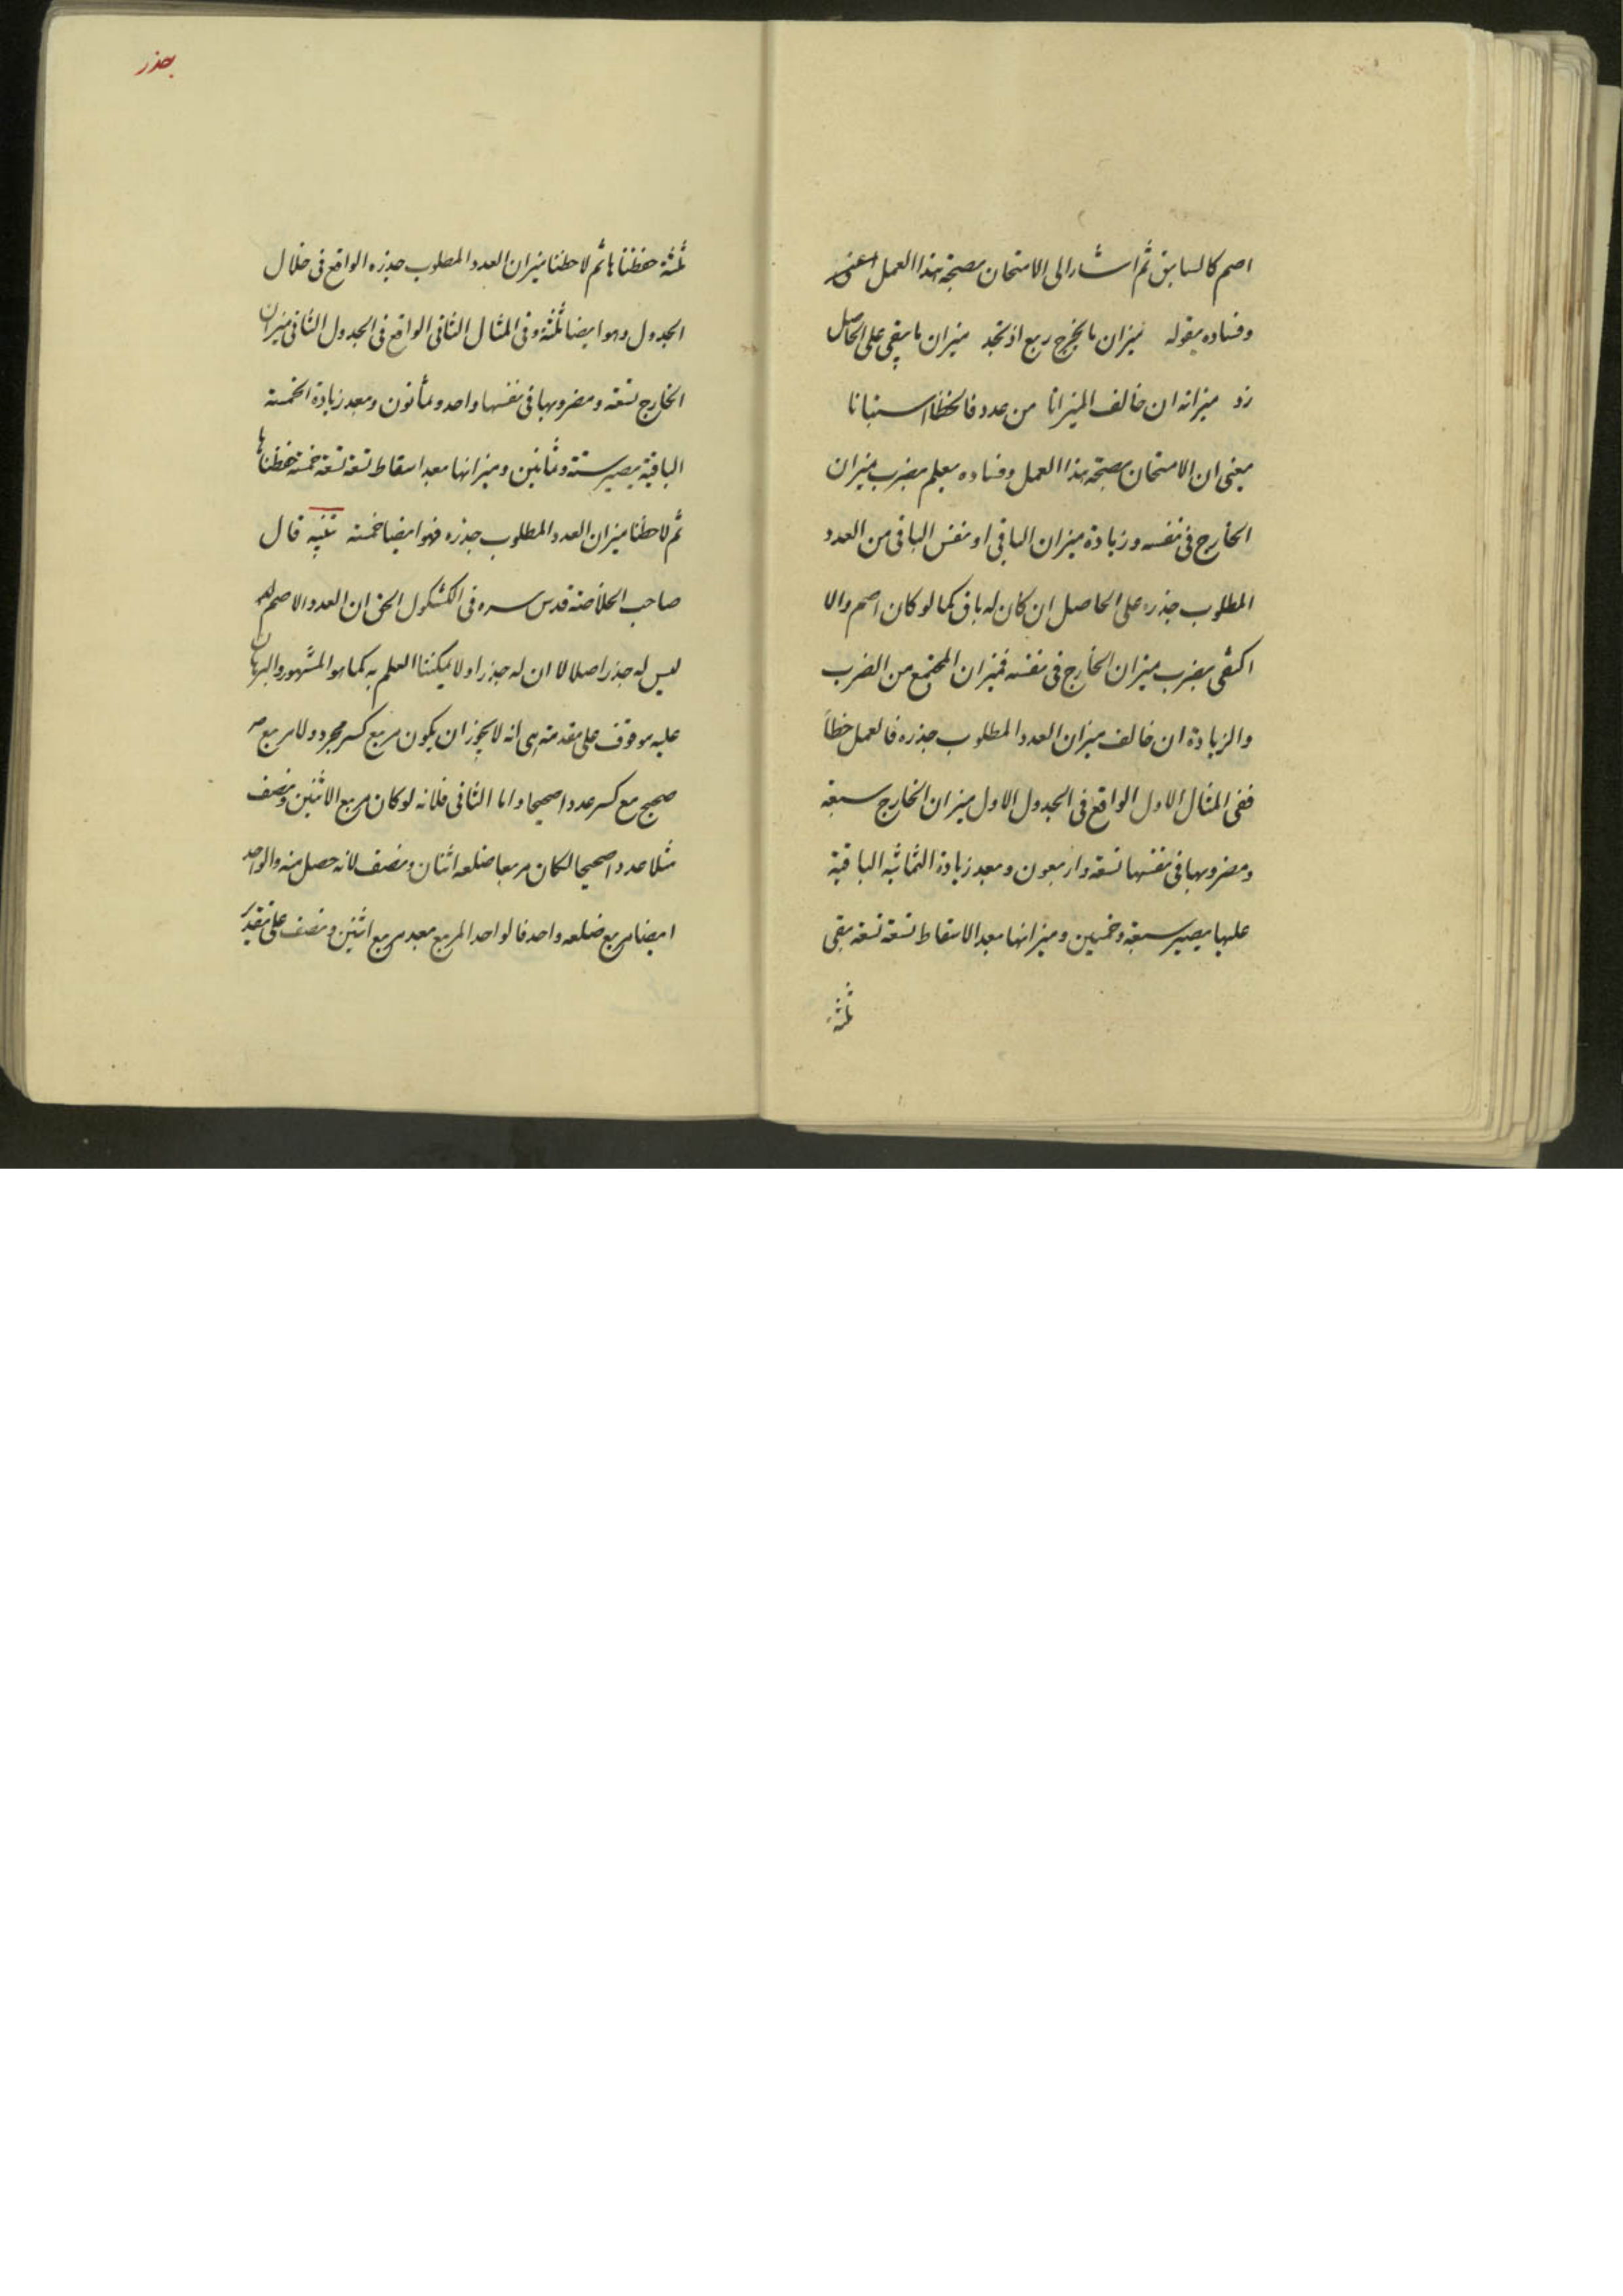 اصم كالسابق ثم اشار الى الامتحان بصحة هذا العمل اعنى
وفساده بقوله ميزان ما يخرج ربع اذ تجد ميزان ما يبقى على الحاصل
زد ميزانه ان خالف الميزانا من عدد فالخطأ استبانا
يعنى ان الامتحان بصحة هذا العمل وفساده يعلم بضرب ميزان
الخارج فى نفسه وزيادة ميزان الباقى او نفس الباقى من العدد
المطلوب جذره على الحاصل ان كان له باق كما لو كان اصم والا
اكتفى بضرب ميزان الخارج فى نفسه فميزان المجتمع من الضرب
والزيادة ان خالف ميزان العدد المطلوب جذره فالعمل خطأ
ففى المثال الاول الواقع فى الجدول الاول ميزان الخارج سبعة
ومضروبها فى نفسها تسعة واربعون وبعد زيادة الثمانية الباقية
عليها يصير سبعة وخمسين وميزانها بعد الاسقاط تسعة تسعة يبقى
ثلثة
بجذر
ثلثة حفظناها ثم لاحظنا ميزان العدد المطلوب جذره الواقع فى خلال
الجدول وهو ايضا ثلثة وفى المثال الثانى الواقع فى الجدول الثانى ميزان
الخارج تسعة ومضروبها فى نفسها واحد وثمانون وبعد زيادة الخمسة
الباقية يصير ستة وثمانين وميزانها بعد اسقاط تسعة تسعة خمسة حفظناها
ثم لاحظنا ميزان العدد المطلوب جذره فهو ايضا خمسة تنبيه قال
صاحب الخلاصة قدس سره فى الكشكول الحق ان العدد الاصم
ليس له جذر اصلا لا ان له جذرا ولا يمكننا العلم به كما هو المشهور والبرهان
عليه موقوف على مقدمة هى انه لا يجوز ان يكون مربع كسر مجرد ولا مربع
صحيح مع كسر عددا صحيحا واما الثانى فلانه لو كان مربع الاثنين ونصف
مثلا عددا صحيحا لكان مربعا ضلعه اثنان ونصف لانه حصل منه والواحد
ايضا مربع ضلعه واحد فالواحد المربع يعد مربع اثنين ونصف على تقدير